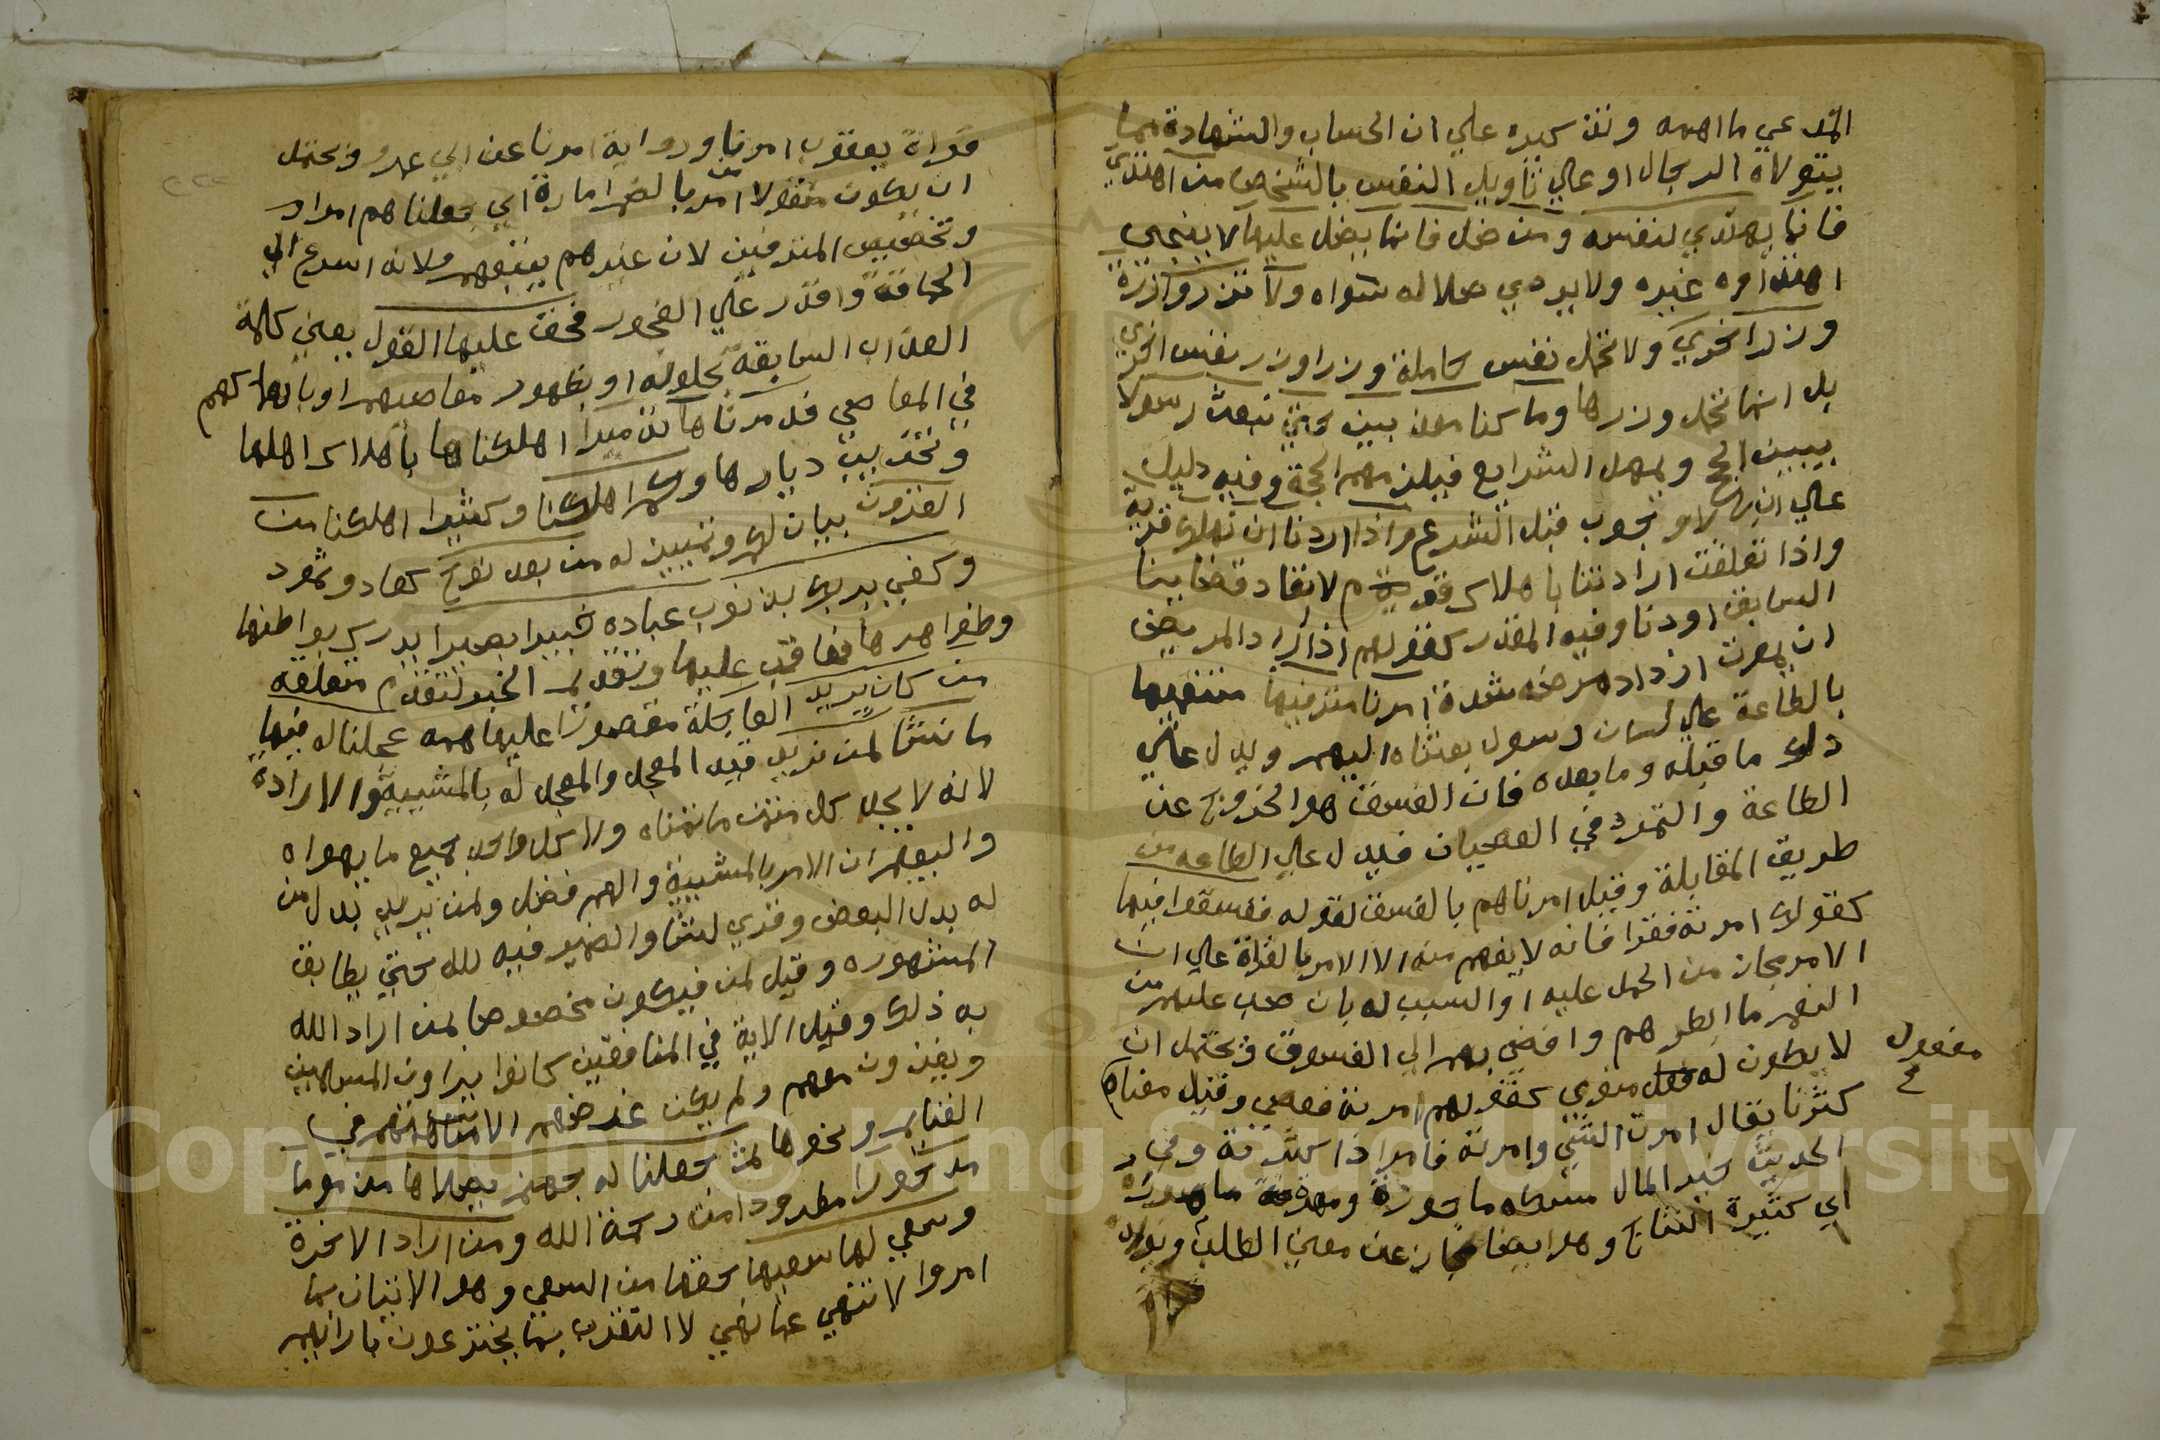 المدعي ما اهمه وتذكيره علي ان الحساب والشهادة مما
يتولاه الرجال او علي تاويل النفس بالشخص من اهتدي
فانما يهتدي لنفسه ومن ضل فانما يضل عليها لا ينجي
اهتداوه غيره ولا يردي ضلاله سواه ولا تزر وازرة
وزر اخري ولا تحمل نفس حاملة وزرا وزر نفس اخري
بل انما تحمل وزرها وما كنا معذبين حتي نبعث رسولا
يبين الحجج ويمهد الشرايع فيلزمهم الحجة وفيه دليل
علي ان لا وجوب قبل الشرع واذا اردنا ان نهلك قرية
واذا تعلقت ارادتنا باهلاك قوم لانفاد قضاينا
السابق او دنا وقته المقدر كقولهم اذا اراد المريض
ان يموت ازداد مرضه شدة امرنا مترفيها متنعميها
بالطاعة علي لسان رسول بعثناه اليهم ويدل علي
ذلك ما قبله وما بعده فان الفسق هو الخروج عن
الطاعة والتمرد في العصيان فيدل علي الطاعه من
طريق المقابلة وقيل امرناهم بالفسق لقوله ففسقوا فيها
كقولك امرته فقرا فانه لا يفهم منه الا الامر بالقراة علي ان
الامر مجاز من الحمل عليه او السبب له بان صب عليهم من
النعم ما ابطرهم وافضي بهم الي الفسوق ويحتمل ان
لا يكون له مفعول منوي كقولهم امرته فعصي وقيل معناه
كثرنا يقال امرت الشي وامرته فامر اذا كثرته وفي
الحديث خير المال سكة مابورة ومهرة مامورة
اي كثيرة النتاج وهو ايضا مجاز عن معني الطلب ويويده
مفعول
قراة يعقوب امرنا ورواية امرنا عن ابي عمرو ويحتمل
ان يكون منقولا من امر بالضم امارة اي جعلناهم امراء
وتخصيص المترفين لان غيرهم يتبعهم ولانه اسرع الي
الحماقة واقدر علي الفجور فحق عليها القول يعني كلمة
العذاب السابقة بحلوله او بظهور معاصيهم او بانهماكهم
في المعاصي فدمرناها تدميرا اهلكناها باهلاك اهلها
وتخريب ديارها وكم اهلكنا وكثيرا اهلكنا من
القرون بيان لكم وتمييز له من بعد نوح كعاد وثمود
وكفي بربك بذنوب عباده خبيرا بصيرا يدرك بواطنها
وظواهرها فيعاقب عليها وتقديم الخبير لتقدم متعلقه
من كان يريد العاجلة مقصورا عليها همه عجلنا له فيها
ما نشا لمن نريد قيد المعجل والمعجل له بالمشيية والارادة
لانه لا يجد كل متمن ما يتمناه ولا كل واحد جميع ما يهواه
وليعلم ان الامر بالمشيية والهم فضل ولمن نريد بدل من
له بدل البعض وقري يشا والضمير فيه لله حتي يطابق
المشهوره وقيل لمن فيكون مخصوصا بمن اراد الله
به ذلك وقيل الاية في المنافقين كانوا يراون المسلمين
ويغزون معهم ولم يكن غرضهم الا مساهمتهم في
الغنايم ونحوها ثم جعلنا له جهنم يصلاها مذموما
مدحورا مطرودا من رحمة الله ومن اراد الاخرة
وسعي لها سعيها حقها من السعي وهو الاتيان بما
امروا لانتهي عما نهي لا التقرب بما يخترعون بارائهم
Copyright © King Saud University